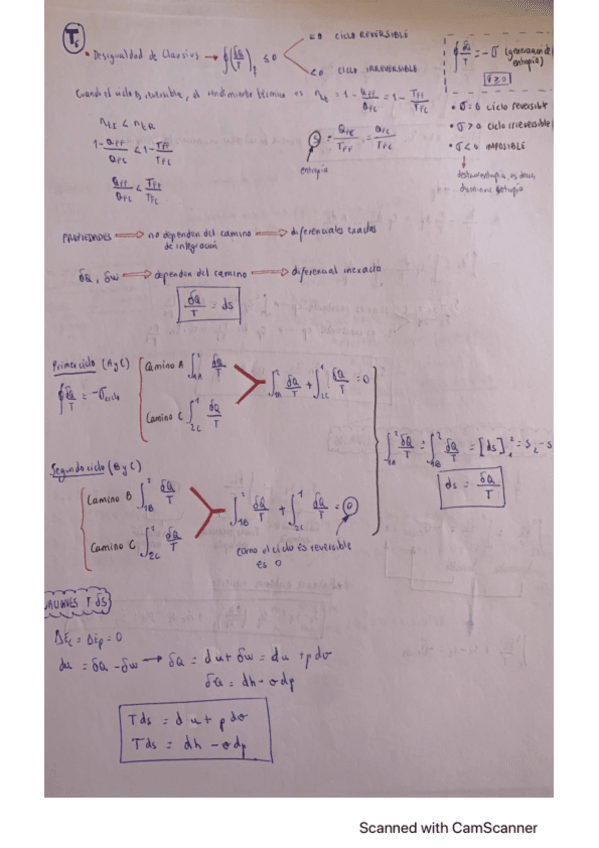 T6
• Desigualdad de Clausius → ∮(δQ/T)f ≤ 0
=0 CICLO REVERSIBLE
<0 CICLO IRREVERSIBLE
∮ δQ/T = -σ (generación de entropía)
σ≥0
• σ=0 ciclo reversible
• σ>0 ciclo irreversible
• σ<0 IMPOSIBLE
Cuando el ciclo es reversible, el rendimiento térmico es ηt = 1 - QFF/QFC = 1 - TFF/TFC
ηtI < ηtR
1 - QFF/QFC < 1 - TFF/TFC
QFF/QFC < TFF/TFC
entropía
PROPIEDADES ⟹ no dependen del camino de integración ⟹ diferenciales exactas
δQ, δW ⟹ dependen del camino ⟹ diferencial inexacta
δQ/T = ds
Primer ciclo (A y C)
∮ δQ/T = -σciclo
Camino A ∫1A^2 δQ/T
Camino C ∫2C^1 δQ/T
∫1A^2 δQ/T + ∫2C^1 δQ/T = 0
∫1A^2 δQ/T = ∫1B^2 δQ/T = [ds]1^2 = s2 - s
ds = δQ/T
Segundo ciclo (B y C)
Camino B ∫1B^2 δQ/T
Camino C ∫2C^1 δQ/T
∫1B^2 δQ/T + ∫2C^1 δQ/T = 0
como el ciclo es reversible
es 0
T dS
ΔEc = ΔEp = 0
du = δQ - δW → δQ = du + δW = du + pdv
δQ = dh - vdp
Tds = du + pdv
Tds = dh - vdp
Scanned with CamScanner